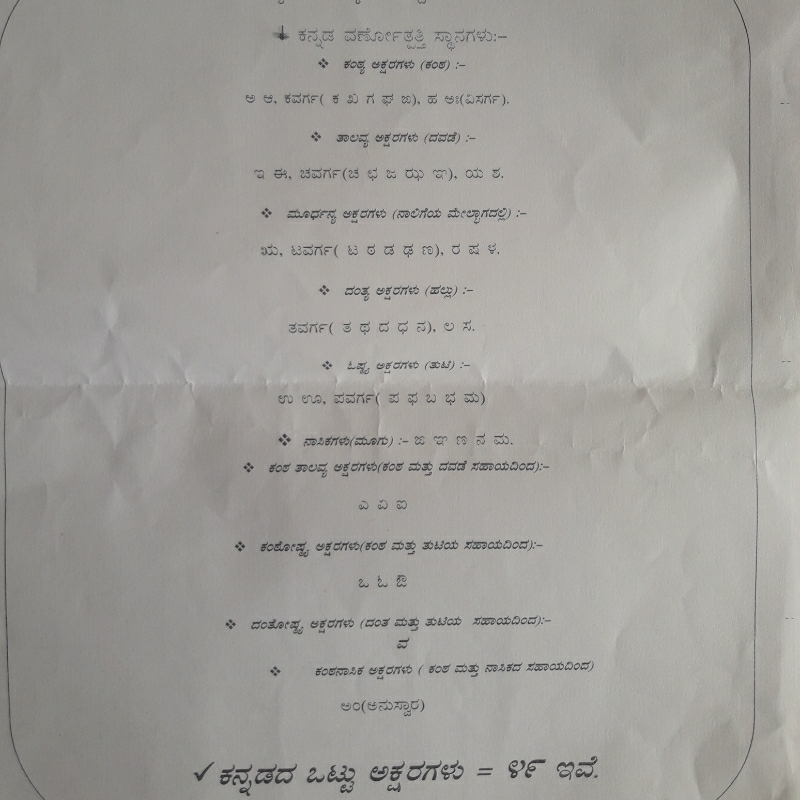 ಕನ್ನಡ ವರ್ಣೋತ್ಪತ್ತಿ ಸ್ಥಾನಗಳು:–
❖ ಕಂಠ್ಯ ಅಕ್ಷರಗಳು (ಕಂಠ) :–
ಅ ಆ, ಕವರ್ಗ( ಕ ಖ ಗ ಘ ಙ), ಹ ಅಃ(ವಿಸರ್ಗ).
❖ ತಾಲವ್ಯ ಅಕ್ಷರಗಳು (ದವಡೆ) :–
ಇ ಈ, ಚವರ್ಗ(ಚ ಛ ಜ ಝ ಞ), ಯ ಶ.
❖ ಮೂರ್ಧನ್ಯ ಅಕ್ಷರಗಳು (ನಾಲಿಗೆಯ ಮೇಲ್ಭಾಗದಲ್ಲಿ) :–
ಋ, ಟವರ್ಗ( ಟ ಠ ಡ ಢ ಣ), ರ ಷ ಳ.
❖ ದಂತ್ಯ ಅಕ್ಷರಗಳು (ಹಲ್ಲು) :–
ತವರ್ಗ( ತ ಥ ದ ಧ ನ), ಲ ಸ.
❖ ಓಷ್ಠ್ಯ ಅಕ್ಷರಗಳು (ತುಟಿ) :–
ಉ ಊ, ಪವರ್ಗ( ಪ ಫ ಬ ಭ ಮ)
❖ ನಾಸಿಕಗಳು(ಮೂಗು) :– ಙ ಞ ಣ ನ ಮ.
❖ ಕಂಠ ತಾಲವ್ಯ ಅಕ್ಷರಗಳು(ಕಂಠ ಮತ್ತು ದವಡೆ ಸಹಾಯದಿಂದ):–
ಎ ಏ ಐ
❖ ಕಂಠೋಷ್ಠ್ಯ ಅಕ್ಷರಗಳು(ಕಂಠ ಮತ್ತು ತುಟಿಯ ಸಹಾಯದಿಂದ):–
ಒ ಓ ಔ
❖ ದಂತೋಷ್ಠ್ಯ ಅಕ್ಷರಗಳು (ದಂತ ಮತ್ತು ತುಟಿಯ ಸಹಾಯದಿಂದ):–
ವ
❖ ಕಂಠನಾಸಿಕ ಅಕ್ಷರಗಳು ( ಕಂಠ ಮತ್ತು ನಾಸಿಕದ ಸಹಾಯದಿಂದ)
ಅಂ(ಅನುಸ್ವಾರ)
✓ ಕನ್ನಡದ ಒಟ್ಟು ಅಕ್ಷರಗಳು = ೪೯ ಇವೆ.